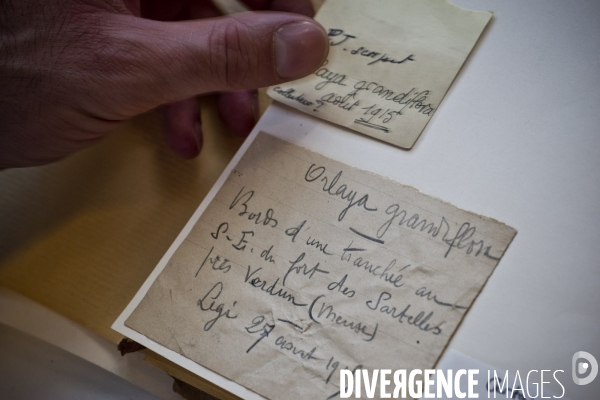 aya grandiflora
août 1915
Orlaya grandiflora
Bords d'une tranchée au
S-E. du fort des Sartelles
près Verdun (Meuse)
Legi 27 août 19
DIVERGENCE IMAGES